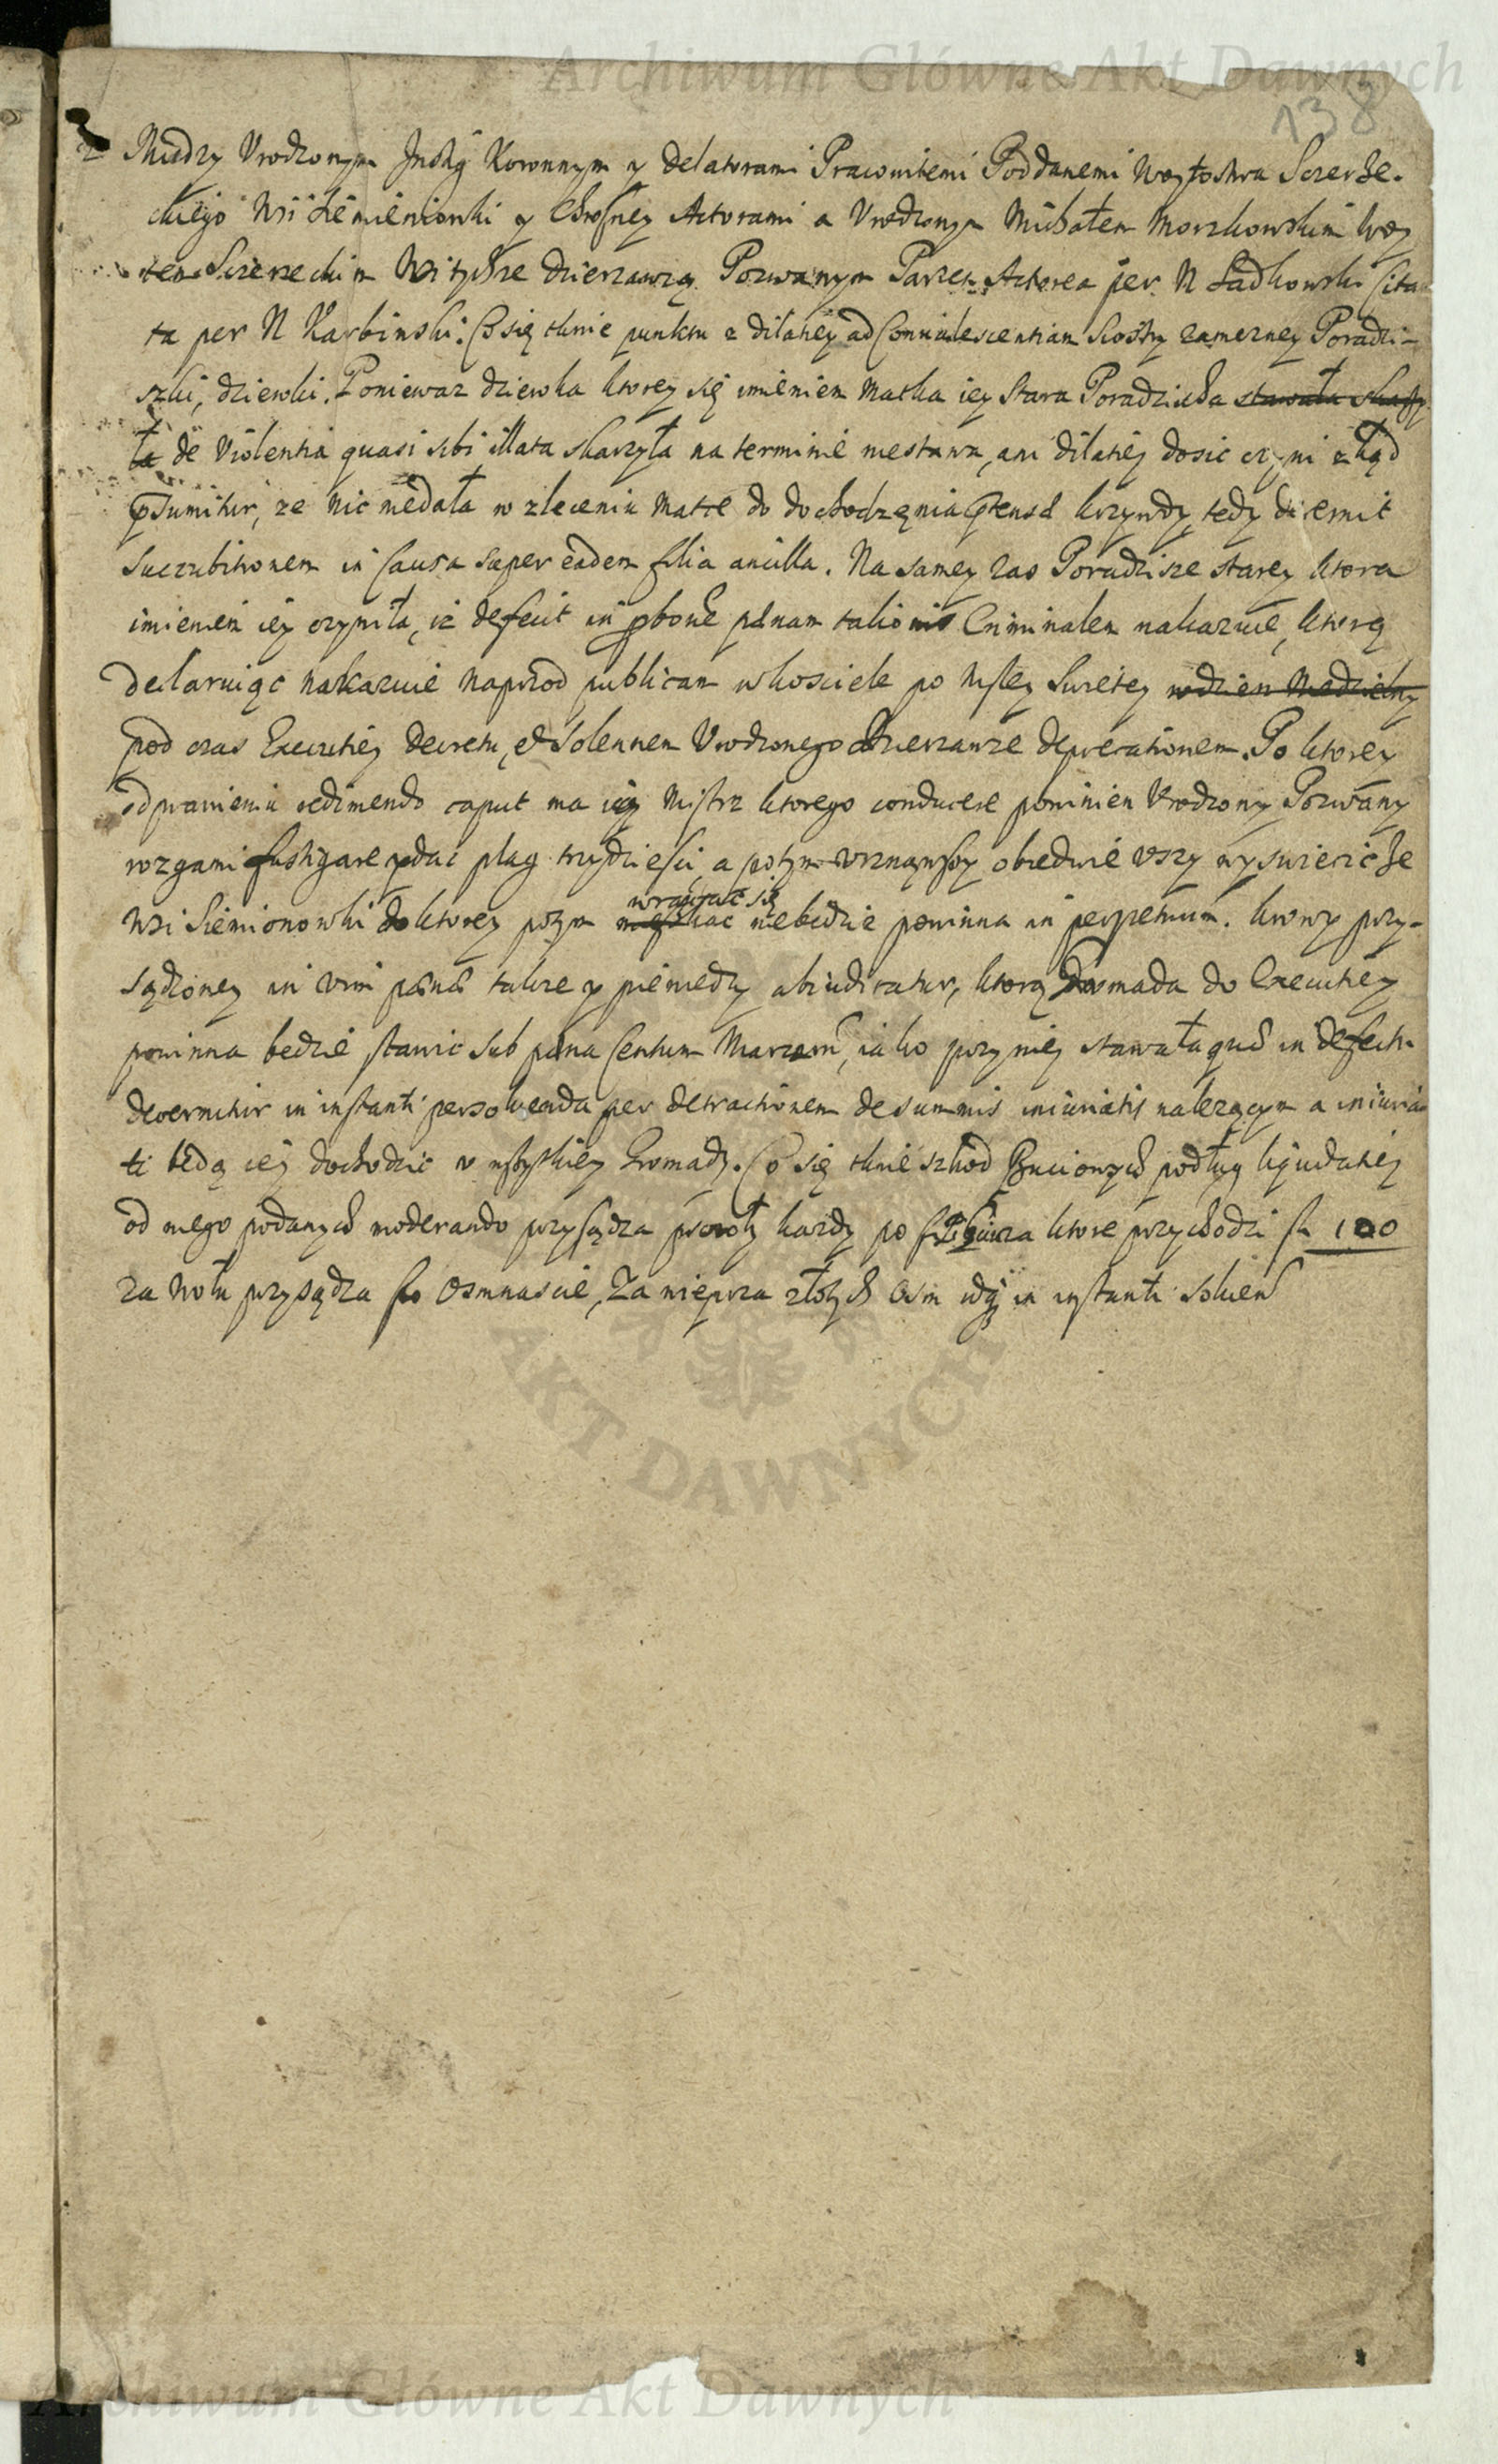 Archiwum Główne Akt Dawnych
138
2 Miedzy Vrodzonym Instig Koronnym y Delatorami Pracowitemi Poddanemi Woytostwa Szerze-
ckiego Wsi Siemieniowki y Chrosney Actorami a Vrodzonym Michałem Morzkowskim Woy
tem Szerzeckim Wsi tychze Dzierzawcą Pozwanym Partem Actorea per N Sadkowski Cita
ta per N Karbinski. Co się tknie punktu z dilatiey ad Convalescentiam Siostry zamezney Poradzi-
szki, dziewki. Poniewaz dziewka ktorey się imieniem Matka iey Stara Poradzicha stawała skarzy
ła de Violentia quasi sibi illata skarzyła na terminie niestawa, ani dilatiey dosic czyni zkąd
psumitur, ze nic niedała w zleceniu Matce do dochodzęnia ptensæ krzywdy, tedy diremit
succubitionem in Causa super eadem filia ancilla. Na samey zas Poradzisze starey ktora
imieniem iey czyniła, iz defecit in pbone pænam talionis Criminalem nakazuie, ktorą
declaruiąc nakazuie naprzod publicam w kosciele po Mszey Swietey w dzien Niedzielny
pod czas Executiey Decretu, et solennem Vrodzonego Dzierzawce deprecationem. Po ktorey
odprawieniu redimendo caput ma iey Mistrz ktorego conducere powinien Vrodzony Pozwany
rozgami fustigare y dac plag trzydziesci, a potym vrznąwszy obiedwie vszy wyswiecic ze
wsi Siemionowki do ktorey potym mięszkac wracac się niebędzie powinna in perpetuum. ktorey przy-
sądzoney in vim pænæ takze y pieniedzy abiudicatur, ktorą Gromada do Executiey
powinna bedzie stawic sub pæna Centum Marcarum, iako przy niey stawała quæ in defectu
decernitur in instanti persolvenda per detractionem de summis iniuriatis nalezącym a iniuria
ti będą iey dochodzic w wszystkiey Gromady. Co się tknie szkod Bucionych podług liquidatiey
od niego podanych moderando przysądza każdy po ktore przychodzi fl 100
za Wołu przysądza fl Osmnascie, Za wieprza złotych Osm in instanti solven
AKT DAWNYCH
Archiwum Główne Akt Dawnych